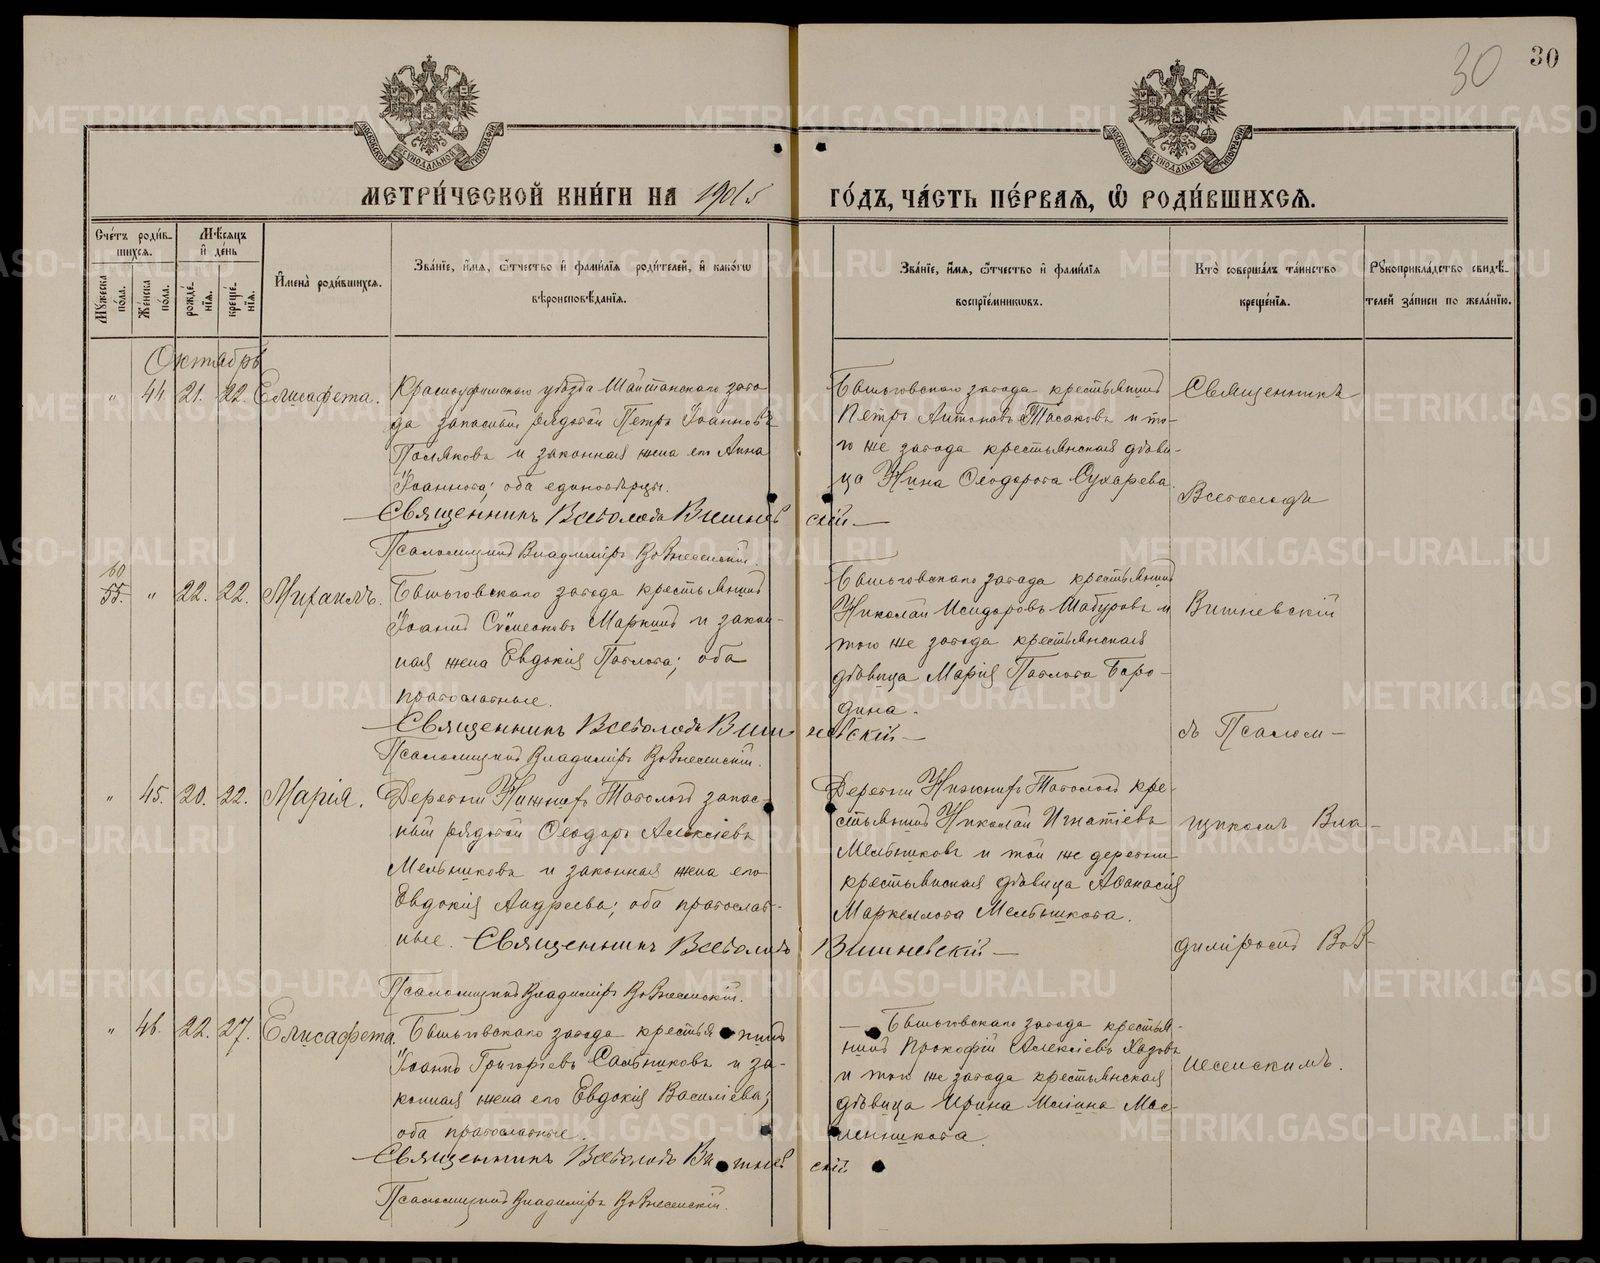 30
30
МОСКОВСКОЙ СѴНОДАЛЬНОЙ ТИПОГРАФІИ
МОСКОВСКОЙ СѴНОДАЛЬНОЙ ТИПОГРАФІИ
МЕТРИ́ЧЕСКОЙ КНИ́ГИ НА 1905
ГО́ДЪ, ЧА́СТЬ ПЕ́РВАѦ, Ѡ҆ РОДИ́ВШИХСѦ.
Сче́тъ роди́в-
шихсѧ.
Мѣ́сѧцъ
и҆ де́нь
Мꙋ́жеска
по́ла.
Же́нска
по́ла.
рожде́-
нїѧ.
креще́-
нїѧ.
И҆мена̀ роди́вшихсѧ.
Зва́нїе, и҆́мѧ, ѻ҆́тчество и҆ фами́лїѧ роди́телей, и҆ како́гѡ
вѣроисповѣ́данїѧ.
Зва́нїе, и҆́мѧ, ѻ҆́тчество и҆ фами́лїѧ
воспрїе́мникѡвъ.
Кто̀ соверша́лъ та́инство
креще́нїѧ.
Рꙋкоприкла́дство свидѣ́-
телей за́писи по жела́нїю.
Октябрь
" 44 21. 22. Елисафета.
Красноуфимскаго уѣзда Шайтанскаго заво-
да запасный рядовой Петръ Іоанновъ
Поляковъ и законная жена его Анна
Іоаннова; оба единовѣрцы.
Священникъ Всеволодъ Вишнев
скій
Псаломщикъ Владиміръ Вознесенскій.
завода крестьянинъ
Петръ Антоновъ и то-
го же завода крестьянская дѣви-
ца Нина Ѳеодорова Сухарева.
Священникъ
Всеволодъ
60
55. " 22. 22. Михаилъ.
завода крестьянинъ
Іоаннъ Сѵмеоновъ Маркинъ и закон-
ная жена Евдокія Павлова; оба
православные.
Священникъ Всеволодъ Виш
невскій
Псаломщикъ Владиміръ Вознесенскій.
завода крестьянинъ
Николай Исидоровъ Шабуровъ и
того же завода крестьянская
дѣвица Марія Павлова Боро-
дина.
Вишневскій
съ Псалом-
" 45. 20. 22. Марія.
Деревни Нижнихъ Тавологъ запас-
ный рядовой Ѳеодоръ Алексіевъ
Мельниковъ и законная жена его
Евдокія Андреева; оба православ-
ные. Священникъ Всеволодъ
Вишневскій
Псаломщикъ Владиміръ Вознесенскій.
Деревни Нижнихъ Тавологъ кре-
стьянинъ Николай Игнатіевъ
Мельниковъ и той же деревни
крестьянская дѣвица Аѳанасія
Маркеллова Мельникова.
щикомъ Вла-
диміромъ Воз-
" 46. 22. 27. Елисафета.
завода крестьянинъ
Іоаннъ Григоріевъ Сальниковъ и за-
конная жена его Евдокія Василіева;
оба православные.
Священникъ Всеволодъ Вишнев
скій
Псаломщикъ Владиміръ Вознесенскій.
завода крестья-
нинъ Прокофій Алексіевъ Хазовъ
и того же завода крестьянская
дѣвица Ирина Мас-
ленникова.
несенскимъ.